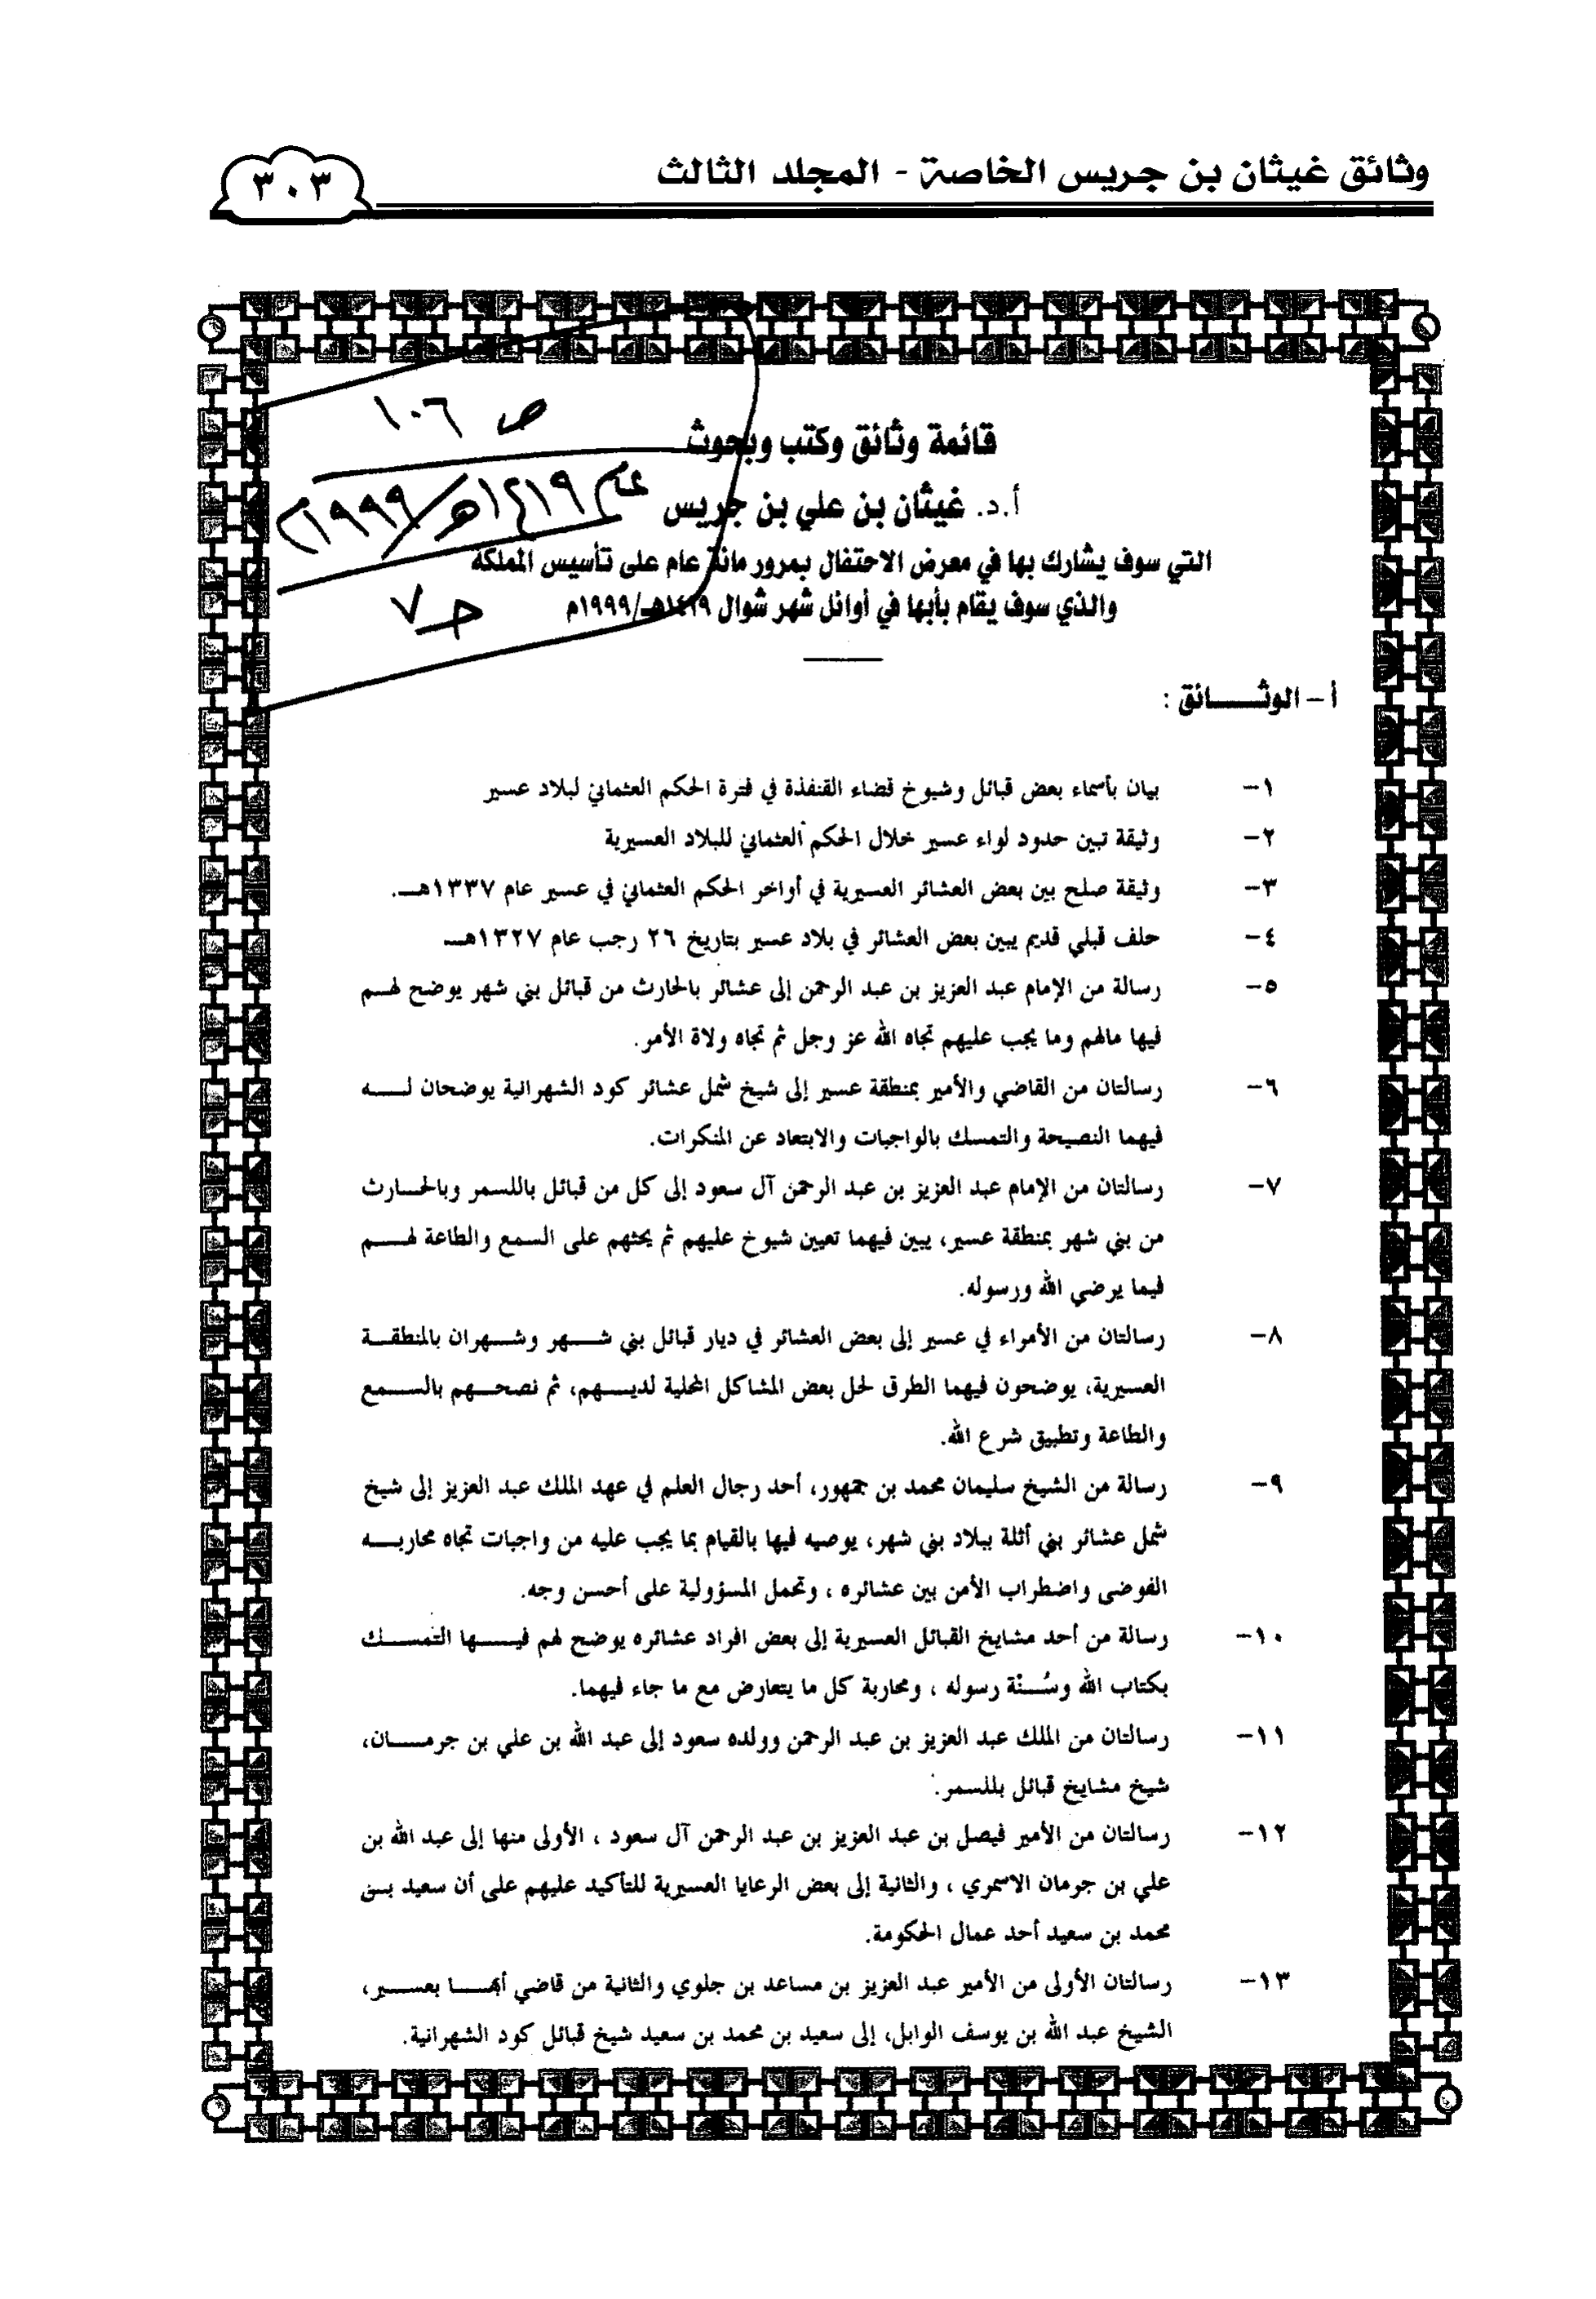 وثائق غيثان بن جريس الخاصة - المجلد الثالث
٣٠٣
ص ١٠٦
عام ١٤١٩هـ/١٩٩٩م
حـ ٧
قائمة وثائق وكتب وبحوث
أ.د. غيثان بن علي بن جريس
التي سوف يشارك بها في معرض الاحتفال بمرور مائة عام على تأسيس المملكة
والذي سوف يقام بأبها في أوائل شهر شوال ١٤١٩هـ/١٩٩٩م
أ – الوثـــــائق :
١– بيان بأسماء بعض قبائل وشيوخ قضاء القنفذة في فترة الحكم العثماني لبلاد عسير
٢– وثيقة تبين حدود لواء عسير خلال الحكم العثماني للبلاد العسيرية
٣– وثيقة صلح بين بعض العشائر العسيرية في أواخر الحكم العثماني في عسير عام ١٣٣٧هـــ.
٤– حلف قبلي قديم يبين بعض العشائر في بلاد عسير بتاريخ ٢٦ رجب عام ١٣٢٧هـــ
٥– رسالة من الإمام عبد العزيز بن عبد الرحمن إلى عشائر بالحارث من قبائل بني شهر يوضح لهـــم
فيها مالهم وما يجب عليهم تجاه الله عز وجل ثم تجاه ولاة الأمر.
٦– رسالتان من القاضي والأمير بمنطقة عسير إلى شيخ شمل عشائر كود الشهرانية يوضحان لـــــه
فيهما النصيحة والتمسك بالواجبات والابتعاد عن المنكرات.
٧– رسالتان من الإمام عبد العزيز بن عبد الرحمن آل سعود إلى كل من قبائل باللسمر وبالحــارث
من بني شهر بمنطقة عسير، يبين فيهما تعيين شيوخ عليهم ثم يحثهم على السمع والطاعة لهــــم
فيما يرضي الله ورسوله.
٨– رسالتان من الأمراء في عسير إلى بعض العشائر في ديار قبائل بني شــــهر وشــهران بالمنطقــة
العسيرية، يوضحون فيهما الطرق لحل بعض المشاكل المحلية لديـــهم، ثم نصحـــهم بالســـمع
والطاعة وتطبيق شرع الله.
٩– رسالة من الشيخ سليمان محمد بن جمهور، أحد رجال العلم في عهد الملك عبد العزيز إلى شيخ
شمل عشائر بني أثلة ببلاد بني شهر، يوصيه فيها بالقيام بما يجب عليه من واجبات تجاه محاربـــه
الفوضى واضطراب الأمن بين عشائره ، وتحمل المسؤولية على أحسن وجه.
١٠– رسالة من أحد مشايخ القبائل العسيرية إلى بعض افراد عشائره يوضح لهم فيــــها التمســـك
بكتاب الله وسُـــنّة رسوله ، ومحاربة كل ما يتعارض مع ما جاء فيهما.
١١– رسالتان من الملك عبد العزيز بن عبد الرحمن وولده سعود إلى عبد الله بن علي بن جرمـــــان،
شيخ مشايخ قبائل بللسمر.
١٢– رسالتان من الأمير فيصل بن عبد العزيز بن عبد الرحمن آل سعود ، الأولى منها إلى عبد الله بن
علي بن جرمان الاسمري ، والثانية إلى بعض الرعايا العسيرية للتأكيد عليهم على أن سعيد بــن
محمد بن سعيد أحد عمال الحكومة.
١٣– رسالتان الأولى من الأمير عبد العزيز بن مساعد بن جلوي والثانية من قاضي أبهـــا بعســـير،
الشيخ عبد الله بن يوسف الوابل، إلى سعيد بن محمد بن سعيد شيخ قبائل كود الشهرانية.